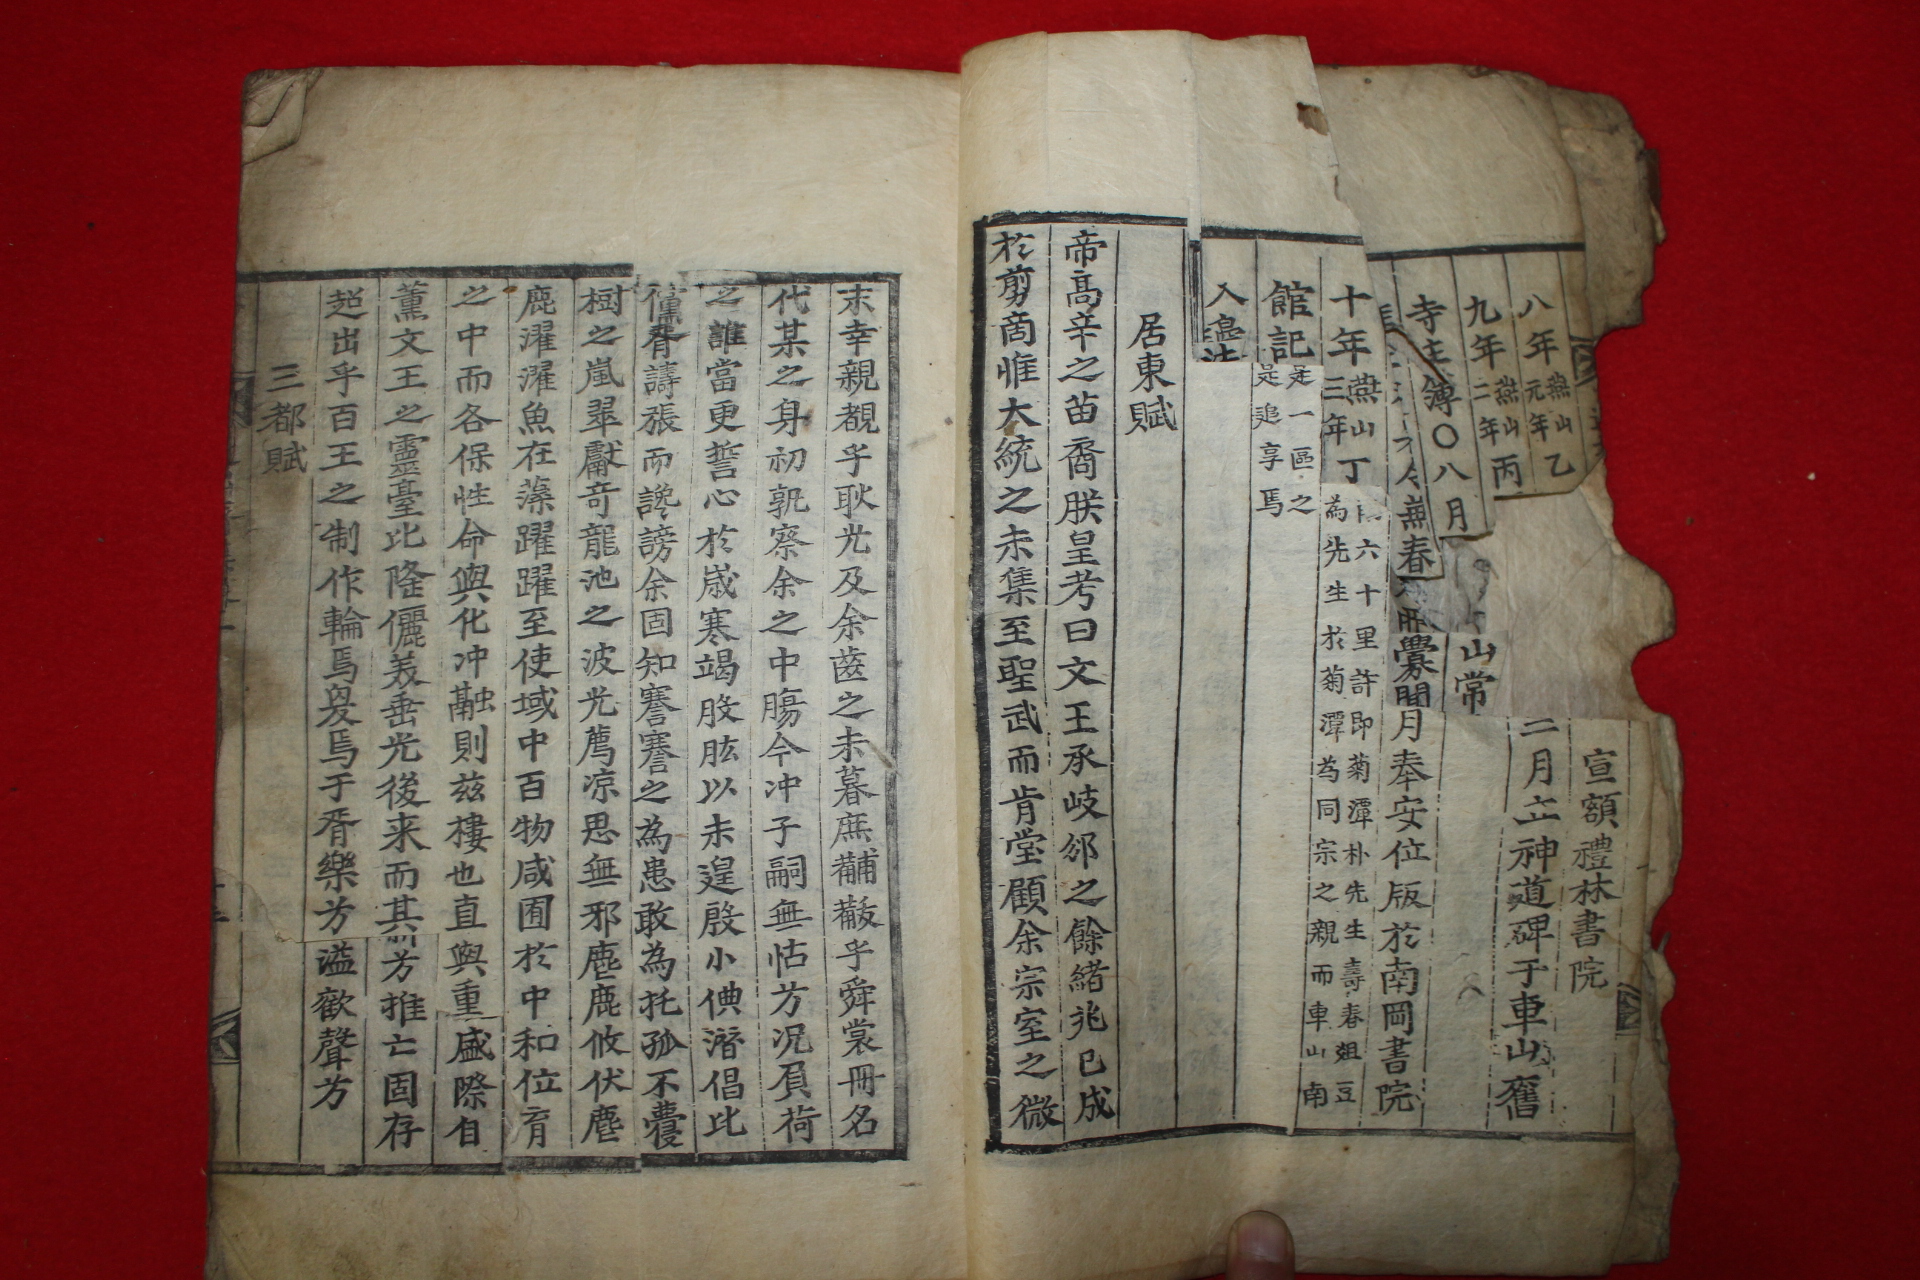 宣額禮林書院
二月立神道碑于車山舊
山常
八年燕山元年乙
九年燕山二年丙
寺主簿〇八月
春
爨聞
月奉安位版於南岡書院
十年燕山三年丁
六十里許即菊潭朴先生壽春俎豆
為先生於菊潭為同宗之親而車山南
館記
是一區之
是追享焉
入
居東賦
帝高辛之苗裔朕皇考曰文王承岐邠之餘緒兆已成
於剪商惟大統之未集至聖武而肯堂顧余宗室之微
末幸親覩乎耿光及余齒之未暮庶黼黻乎舜裳冊名
代某之身初孰察余之中腸今冲子嗣無怙方況屓荷
之誰當更誓心於歲寒竭股肱以未遑殷小倎潛倡比
儻胥譸張而讒謗余固知謇謇之為患敢為托孤不
樹之嵐翠獻奇龍池之波光薦凉思無邪麀鹿攸伏麀
鹿濯濯魚在藻躍躍至使域中百物咸囿於中和位育
之中而各保性命與化冲融則兹樓也直與重盛際自
薰文王之靈臺比隆儷美垂光後來而其方推亡固存
超出乎百王之制作輪焉奐焉于胥樂方溢歡聲方
三都賦